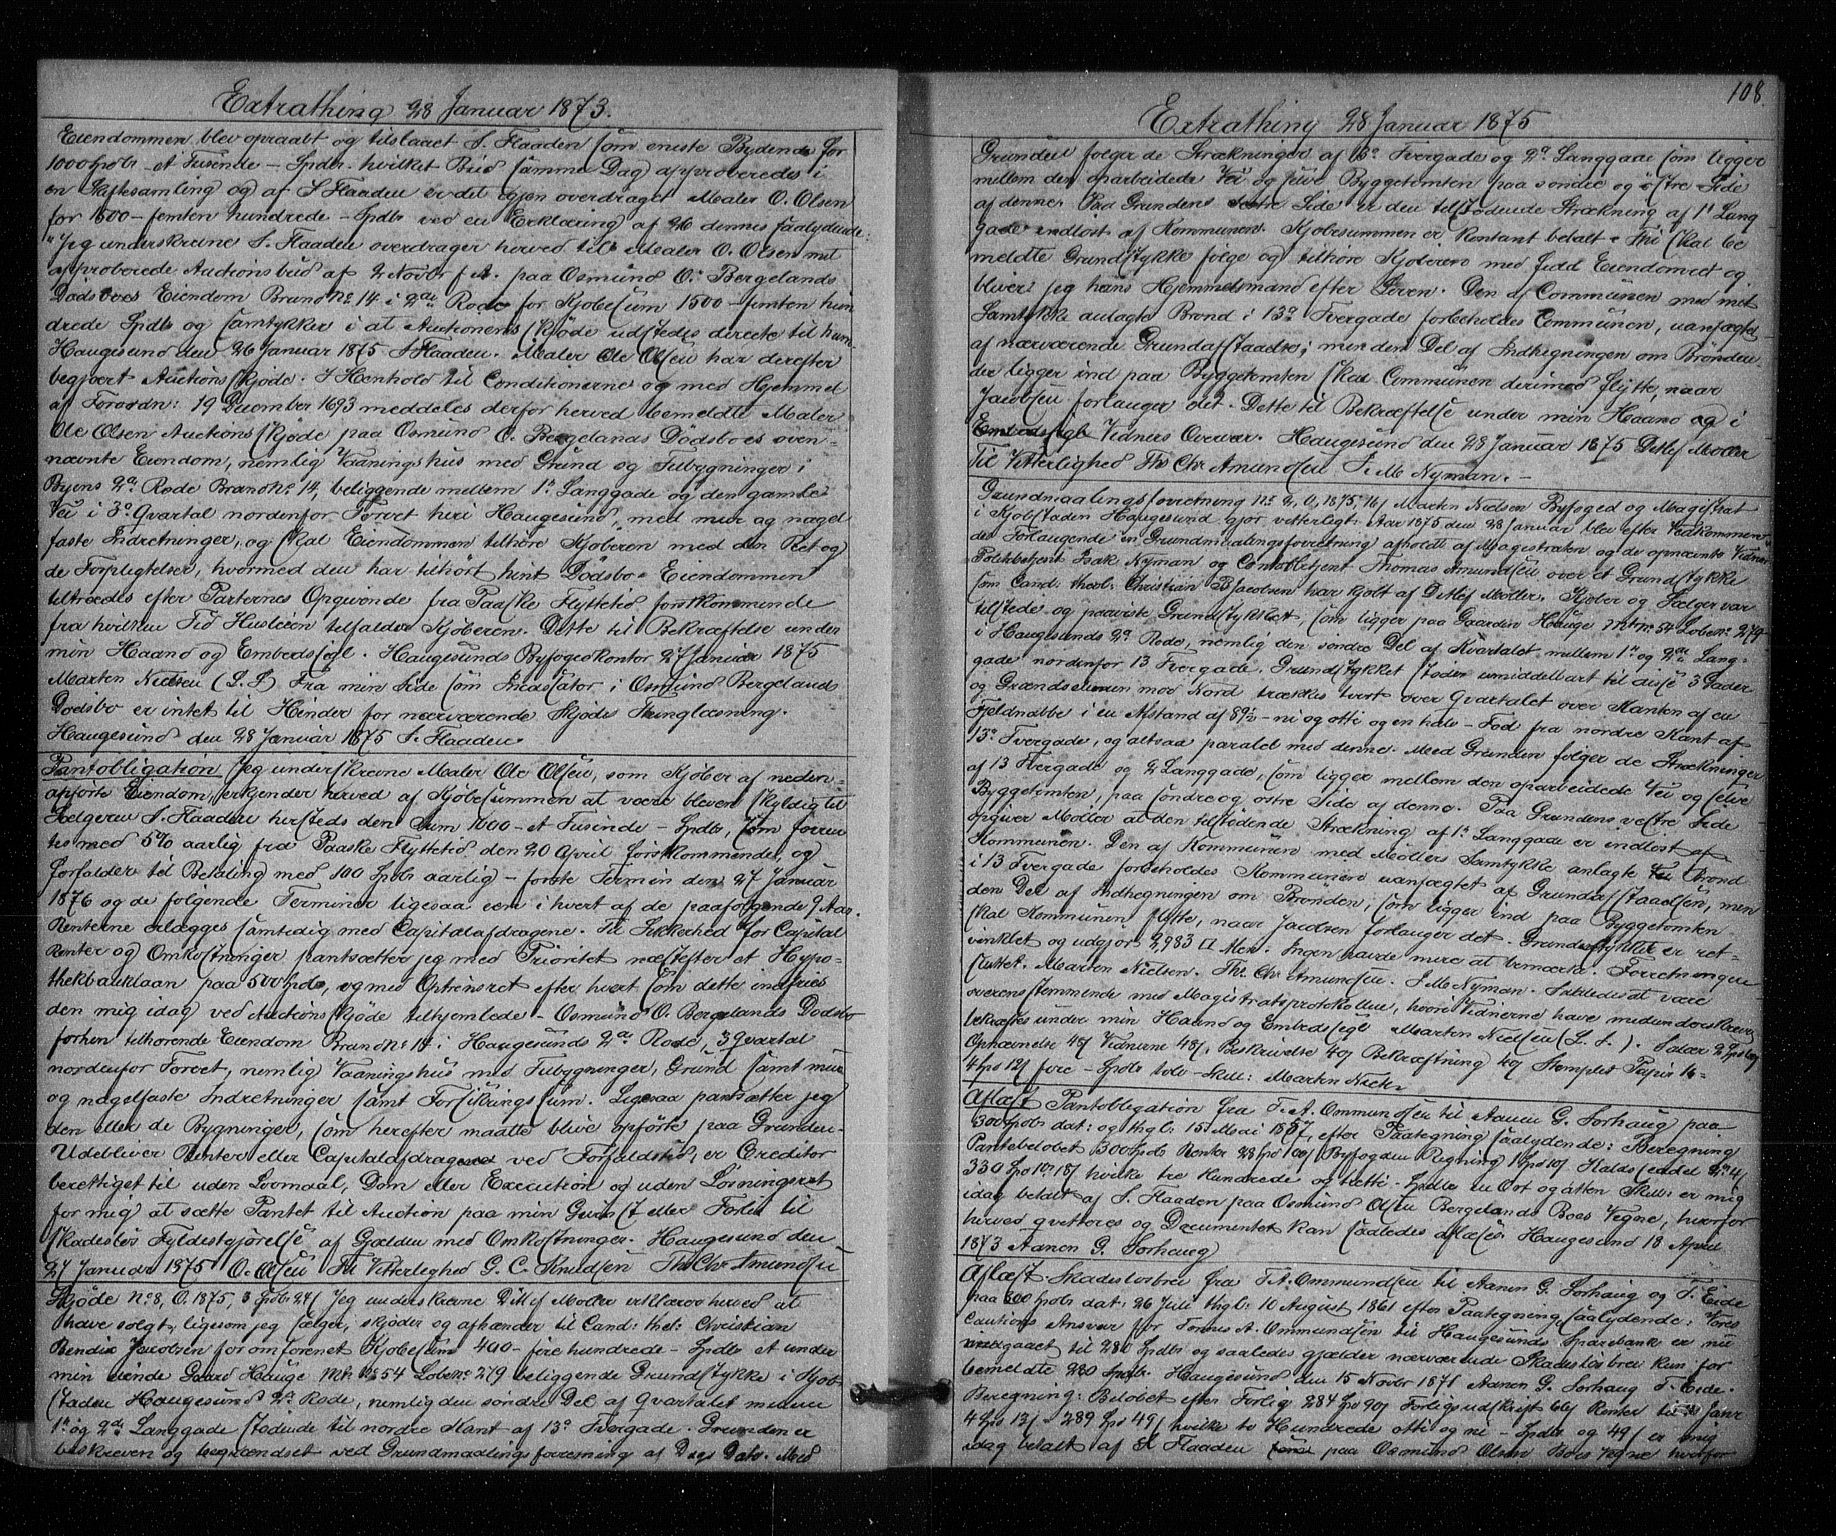 Extrathing 28 Januar 1873.
Eiendommen blev opraabt og tilslaaet S. Flaaden som eneste Bydende for
1000 Spdlr - et Tusende - Spdlr. hvilket Bud samme Dag approberedes i
en Skiftesamling og af S Flaaden er det igjen overdraget Maler O. Olsen
for 1500 - femten hundrede - Spdlr ved en Erklæring af 26 dennes saalydende:
"Jeg underskrevne S. Flaaden overdrager herved til Maler O. Olsen mit
approberede Auctionsbud af 2 Novbr f. A. paa Osmund O. Bergelands
Dødsboes Eiendom Brand No 14 i 2den Rode for Kjøbesum 1500 - femten hun
drede Spdlr og samtykker i at Auctionsskjøde udstedes directe til ham
Haugesund den 26 Januar 1875 S. Flaaden. Maler Ole Olsen har derefter
begjært Auctionsskjøde. I Henhold til Conditionerne og med Hjemmel
af Forordn: 19 December 1693 meddeles derfor herved bemeldte Maler
Ole Olsen Auctionsskjøde paa Osmund O. Bergelands Dødsboes oven-
nævnte Eiendom, nemlig Vaaningshus med Grund og Tilbygninger i
Byens 2den Rode Brand No 14, beliggende mellem 1te Langgade og den gamle
Vei i 3die Qvartal nordenfor Torvet heri Haugesund, med mur og nagel
faste Indretninger, og skal Eiendommen tilhøre Kjøberen med den Ret og
de Forpligtelser, hvormed den har tilhørt hint Dødsbo - Eiendommen
tiltrædes efter Parternes Opgivende fra Paaske Flyttetid førstkommende
fra hvilken Tid Husleien tilfalder Kjøberen. Dette til Bekræftelse under
min Haand og Embedssegl. Haugesunds Byfogedkontor 27 Januar 1875
Marten Nielsen (L. S) Fra min Side som Incassator i Osmund Bergelands
Dødsbo er intet til Hinder for nærværende Skjødes Thinglæsning.
Haugesund den 28 Januar 1875 S. Flaaden.
Pantobligation Jeg underskrevne Maler Ole Olsen, som Kjøber af neden-
anførte Eiendom, erkjender herved af Kjøbesummen at være bleven skyldig til
Sælgeren S. Flaaden hersteds den Sum 1000 - et Tusinde - Spdlr, som forren
tes med 5% aarlig fra Paaske Flyttetid den 20 April førstkommende, og
forfalder til Betaling med 100 Spdlr aarlig - første Termin den 27 Januar
1876 og de følgende Terminer ligesaa een i hvert af de paafølgende 9 Aar.
Renterne erlægges samtidig med Capitalafdragene. Til Sikkerhed for Capital
Renter og Omkostninger pantsætter jeg med Prioritet næstefter et Hypo-
thekbanklaan paa 500 Spdlr, og med Optrinsret efter hvert som dette indfries
den mig idag ved Auctionsskjøde tilhjemlede - Osmund O. Bergelands Dødsbo
forhen tilhørende Eiendom Brand No 14 i Haugesunds 2den Rode, 3 Qvartal
nordenfor Torvet, nemlig Vaaningshus med Tilbygninger, Grund samt mur
og nagelfaste Indretninger samt Forsikringssum. Ligesaa pantsætter jeg
den eller de Bygninger, som herefter maatte blive opførte paa Grunden.
Udebliver Renter eller Capitalafdragene ved Forfaldstid, er Creditor
berettiget til uden Lovmaal, Dom eller Execution og uden Løsningsret
for mig at sætte Pantet til Auction paa min Gunst eller Forlis til
skadesløs Fyldestgjørelse af Gjælden med Omkostninger. Haugesund den
27 Januar 1875 O. Olsen Til Vitterlighed G. C. Knudsen Th: Chr Amundsen
Skjøde No 8, O. 1875, 3 Spdlr 24s Jeg underskrevne Ditlef Møller erklærer herved at
have solgt, ligesom jeg sælger, skjøder og afhænder til Cand: thel: Christian
Bendix Jacobsen for omforenet Kjøbesum 400 - fire hundrede - Spdlr et under
min eiende Gaard Hauge Mtr No 54 Løbeno 279 beliggende Grundstykke i Kjøb
staden Haugesunds 2den Rode, nemlig den søndre Del af Qvartalet mellem
1te og 2den Langgade stødende til nordre Kant af 13de Tvergade. Grunden er
beskreven og begrændset ved Grundmaalingsforretning af Dags Dato. Med
108
Extrathing 28 Januar 1875
Grunden følger de Strækninger af 13de Tvergade og 2den Langgade som ligger
mellem den oparbeidede Vei og selve Byggetomten paa søndre og østre Side
af denne. Paa Grundens vestre Side er den tilstødende Strækning af 1te Lang
gade indløst af Kommunen. Kjøbesummen er kontant betalt. Thi skal be
meldte Grundstykke følge og tilhøre Kjøberen med fuld Eiendomsret og
bliver jeg hans Hjemmelsmand efter Loven. Den af Communen med mit
Samtykke anlagte Brønd i 13de Tvergade forbeholdes Communen, uanfægtet
af nærværende Grundafstaaelse; men den Del af Indhegningen om Brønden
der ligger ind paa Byggetomten skal Communen derimod flytte, naar
Jacobsen forlanger det. Dette til Bekræftelse under min Haand og i
Embedssegl Vidners Overvær. Haugesund den 28 Januar 1875 Detlef Møller
Til Vitterlighed Th: Chr Amundsen I. M. Nyman. -
Grundmaalingsforretning No 2, O, 1875, 16s Marten Nielsen Byfoged og Magistrat
i Kjøbstaden Haugesund gjør vitterligt: Aar 1875 den 28 Januar blev efter Vedkommen
des Forlangende en Grundmaalingsforretning afholdt af Magistraten og de opnævnte Vidner
Politibetjent Isak Nyman og Contorbetjent Thomas Amundsen over et Grundstykke
som Cand: theol: Christian B Jacobsen har kjøbt af Detlef Møller. Kjøber og Sælger var
tilstede og paaviste Grundstykket, som ligger paa Gaarden Hauge Mtr No 54 Løbeno 279
i Haugesunds 2den Rode, nemlig den søndre Del af Kvartalet mellem 1te og 2den Lang-
gade nordenfor 13 Tvergade. Grundstykket støder umiddelbart til disse 3 Gader
og Grændselinien mod Nord trækkes tvert over Qvartalet over Kanten af en
Fjeldnabbe i en Afstand af 89½ - ni og otti og en halv - Fod fra nordre Kant af
13de Tvergade, og altsaa paralel med denne. Med Grunden følger de Strækninger
af 13 Tvergade og 2 Langgade, som ligger mellem den oparbeidede Vei og selve
Byggetomten, paa søndre og østre Side af denne. Paa Grundens vestre Side
opgiver Møller at den tilstødende Strækning af 1te Langgade er indløst af
Kommunen. Den af Kommunen med Møllers Samtykke anlagte Brønd
i 13 Tvergade forbeholdes Kommunen uanfægtet af Grundafstaaelsen, men
den Del af Indhegningen om Brønden, som ligger ind paa Byggetomten
skal Kommunen flytte, naar Jacobsen forlanger det. Grundstykket er ret-
vinklet og udgjør 2,983 □ Alen. Ingen havde mere at bemærke. Forretningen
sluttet. Marten Nielsen. Th: Chr Amundsen. I. M. Nyman. Saaledes at være
overensstemmende med Magistratsprotokollen, hvori Vidnerne have medunderskrevet
bekræftes under min Haand og Embedssegl Marten Nielsen (L. S.). Salær 2 Spdlr
Opnævnelse 48s Vidnerne 48s. Beskrivelse 40s Bekræftning 40s Stemplet Papir 16=
4 Spd 12s fire - Spdlr tolv - Skill: Marten Nielsen
Aflæst Pantobligation fra T. A. Ommundsen til Aanen G. Sørhaug paa
300 Spdlr dat: og thgl: 15 Mai 1857, efter Paategning saalydende: Beregning
Pantebeløbet 300 Spdlr Renter 28 Spd Byfogdens Regning 1 Spd
330 Spd 1 ort 18s hvilke tre hundrede og tretti - Spdlr en Ort og atten Skill: er mig
idag betalt af S. Flaaden paa Osmund Olsen Bergelands Boes Vegne, hvorfor
herved qvitteres og Documentet kan saaledes aflæses Haugesund 18 April
1873 Aanen G. Sørhaug
Aflæst Skadesløsbrev fra T. A. Ommundsen til Aanen G. Sørhaug og T. Eide
paa 300 Spdlr dat: 26 Juli thgl: 10 August 1861 efter Paategning saalydende: Vores
Cautions Ansvar for Tønnes A. Ommundsen til Haugesunds Sparebank er nu
nedgaaet til 280 Spdlr og saaledes gjælder nærværende Skadesløsbrev kun for
bemeldte 280 Spdlr. Haugesund den 15 Novbr 1871 Aanen G. Sørhaug T. Eide.
Beregning: Beløbet efter Forlig 284 Spd 90s Forligsudskrift 66s Renter til Janr
4 Spd 13s - 289 Spd 49s hvilke to Hundrede otti og ni - Spdlr og 49s er mig
idag betalt af S. Flaaden paa Osmund Olsen Boes Vegne hvorfor